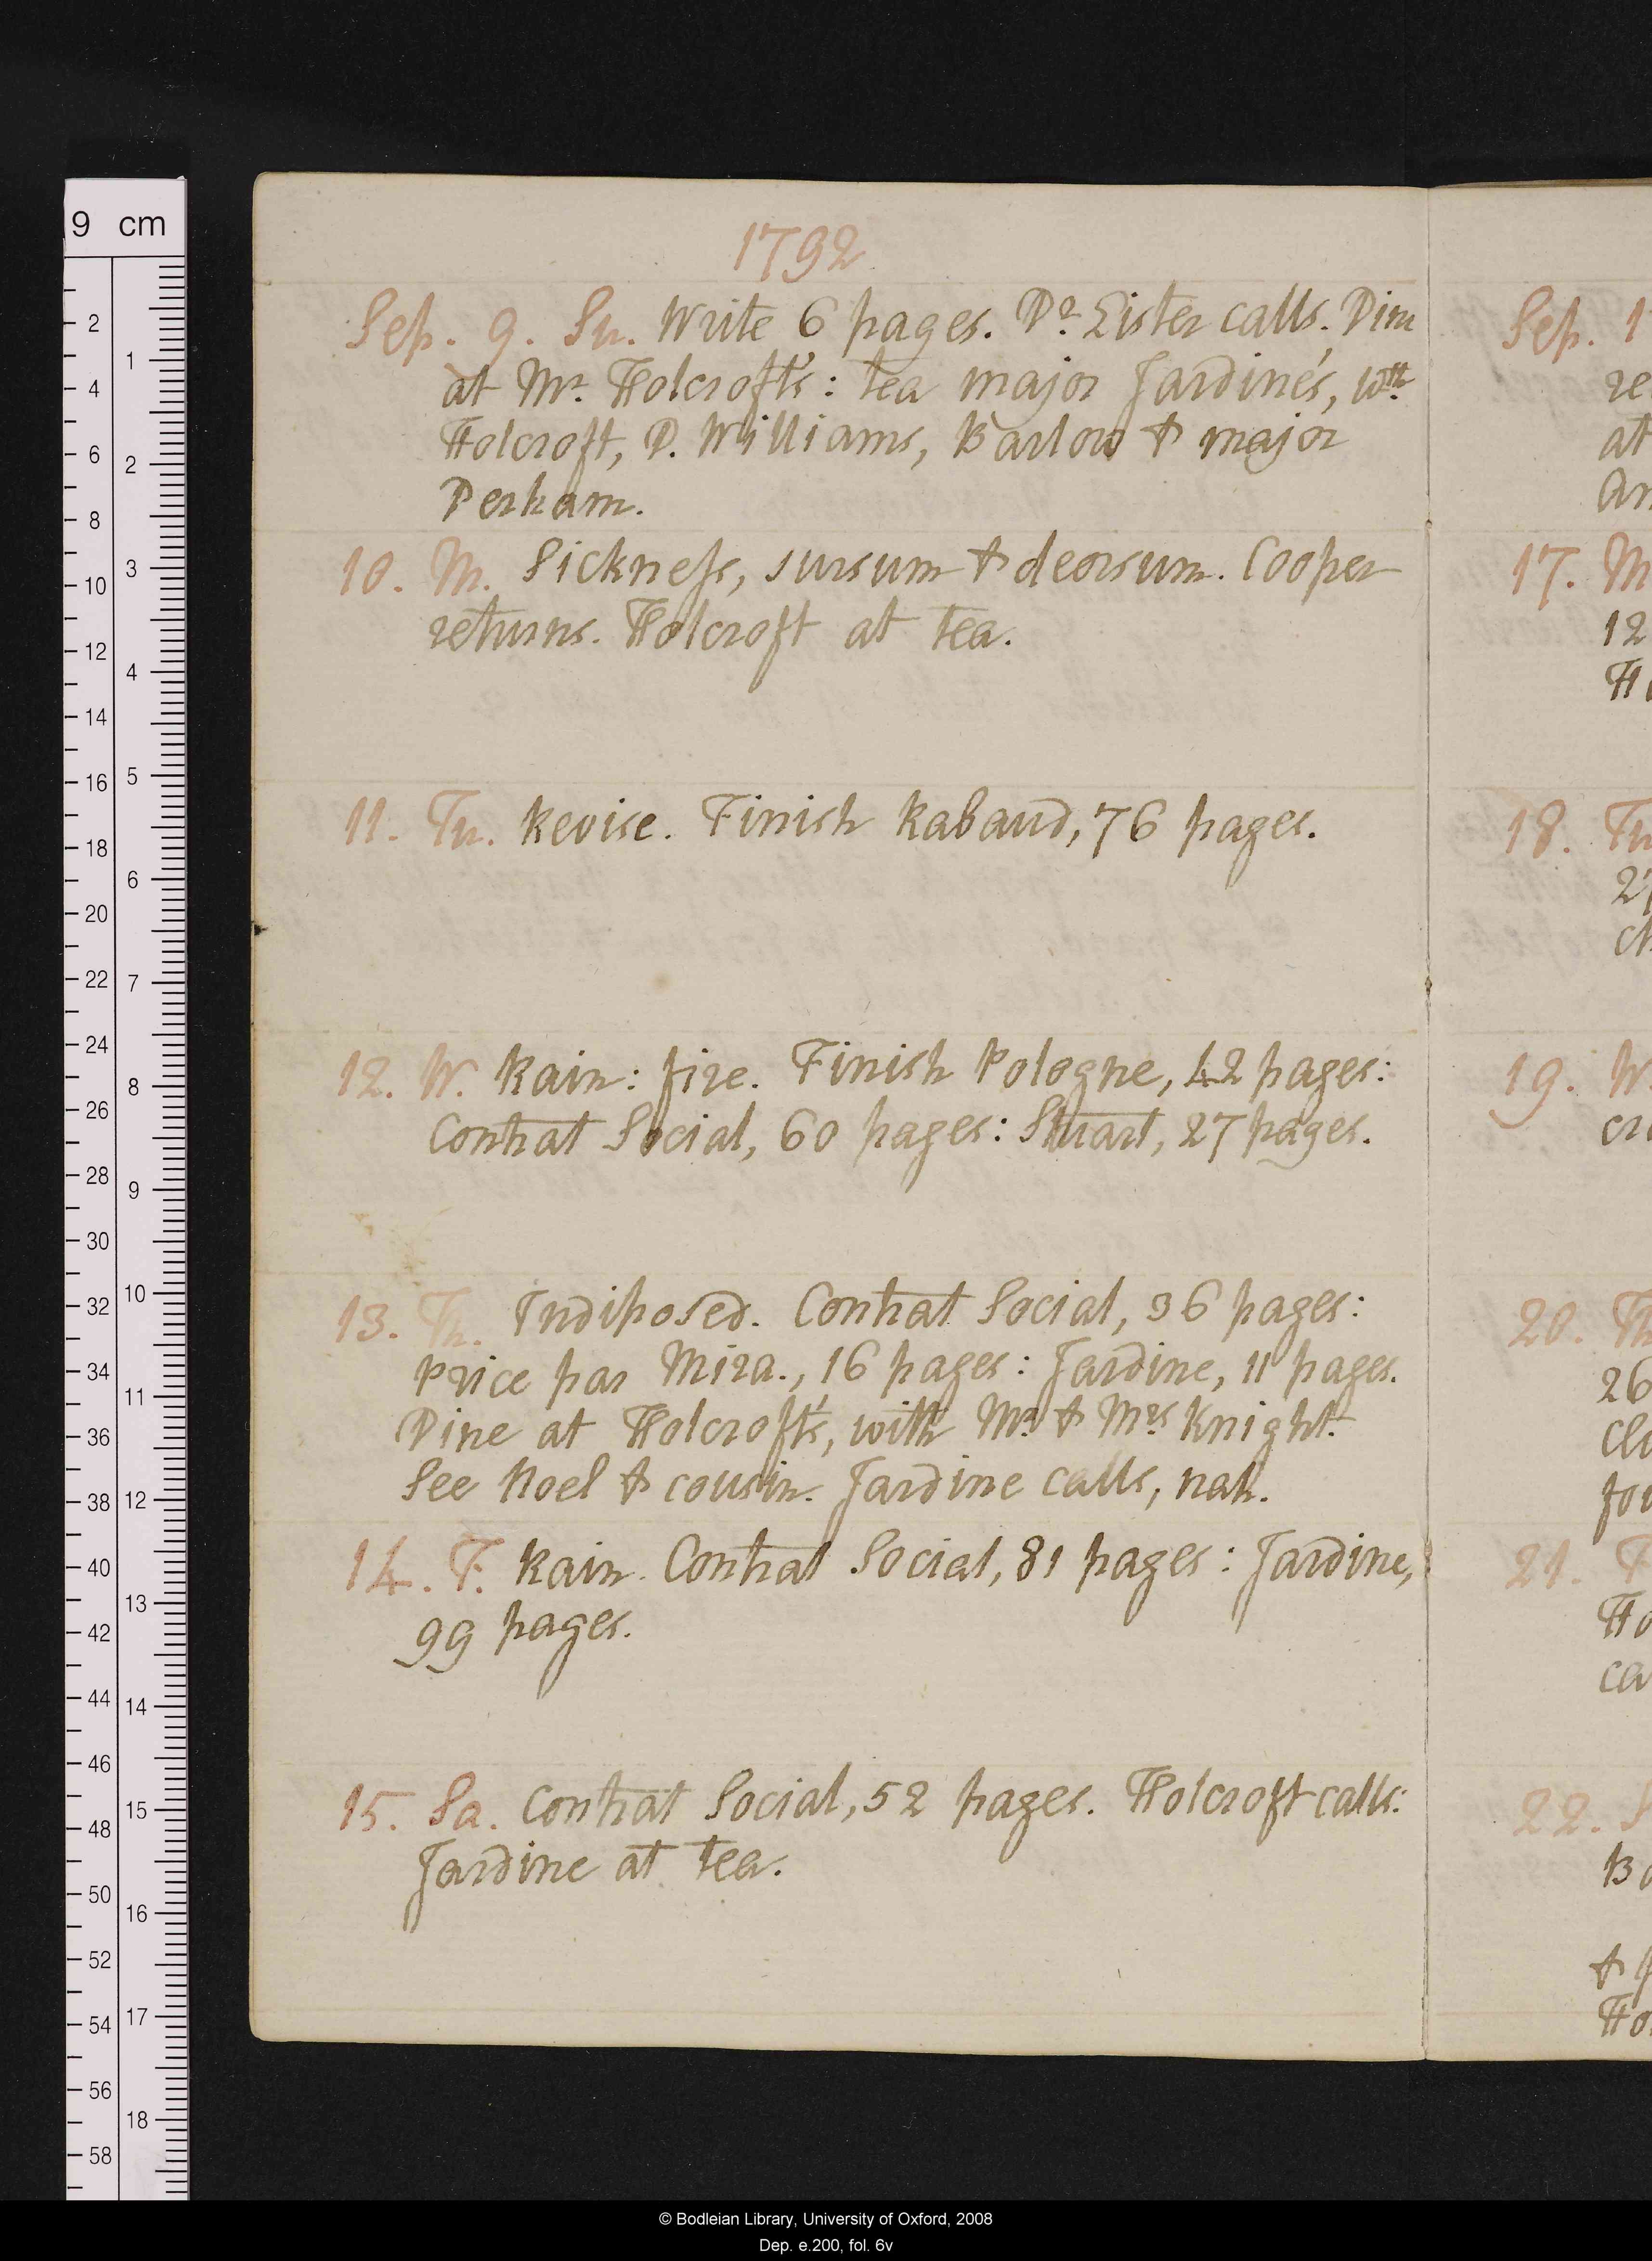 1792
Sep. 9. Su. Write 6 pages. Dr Lister calls. Dine
at Mr Holcroft's: tea major Jardine's, wth
Holcroft, D. Williams, Barlow & major
Perham.
10. M. Sickness, sursum & deorsum. Cooper
returns. Holcroft at tea.
11. Tu. Revise. Finish Rabaud, 76 pages.
12. W. Rain: fire. Finish Pologne, 42 pages:
Contrat Social, 60 pages: Stuart, 27 pages.
13. Th. Indisposed. Contrat Social, 36 pages:
Price par Mira., 16 pages: Jardine, 11 pages.
Dine at Holcroft's, with Mr & Mrs Knight.
See Noel & cousin. Jardine calls, nah.
14. F. Rain. Contrat Social, 81 pages: Jardine,
99 pages.
15. Sa. Contrat Social, 52 pages. Holcroft calls:
Jardine at tea.
Sep. 1
re
at
17. M
12
H
18. Tu
27
ch
19. W
cr
20. Th
26
clu
for
21. F
Ho
ca
22. S
B
&
Ho
9 cm
2
4
6
8
10
12
14
16
18
20
22
24
26
28
30
32
34
36
38
40
42
44
46
48
50
52
54
56
58
1
2
3
4
5
6
7
8
9
10
11
12
13
14
15
16
17
18
© Bodleian Library, University of Oxford, 2008
Dep. e.200, fol. 6v